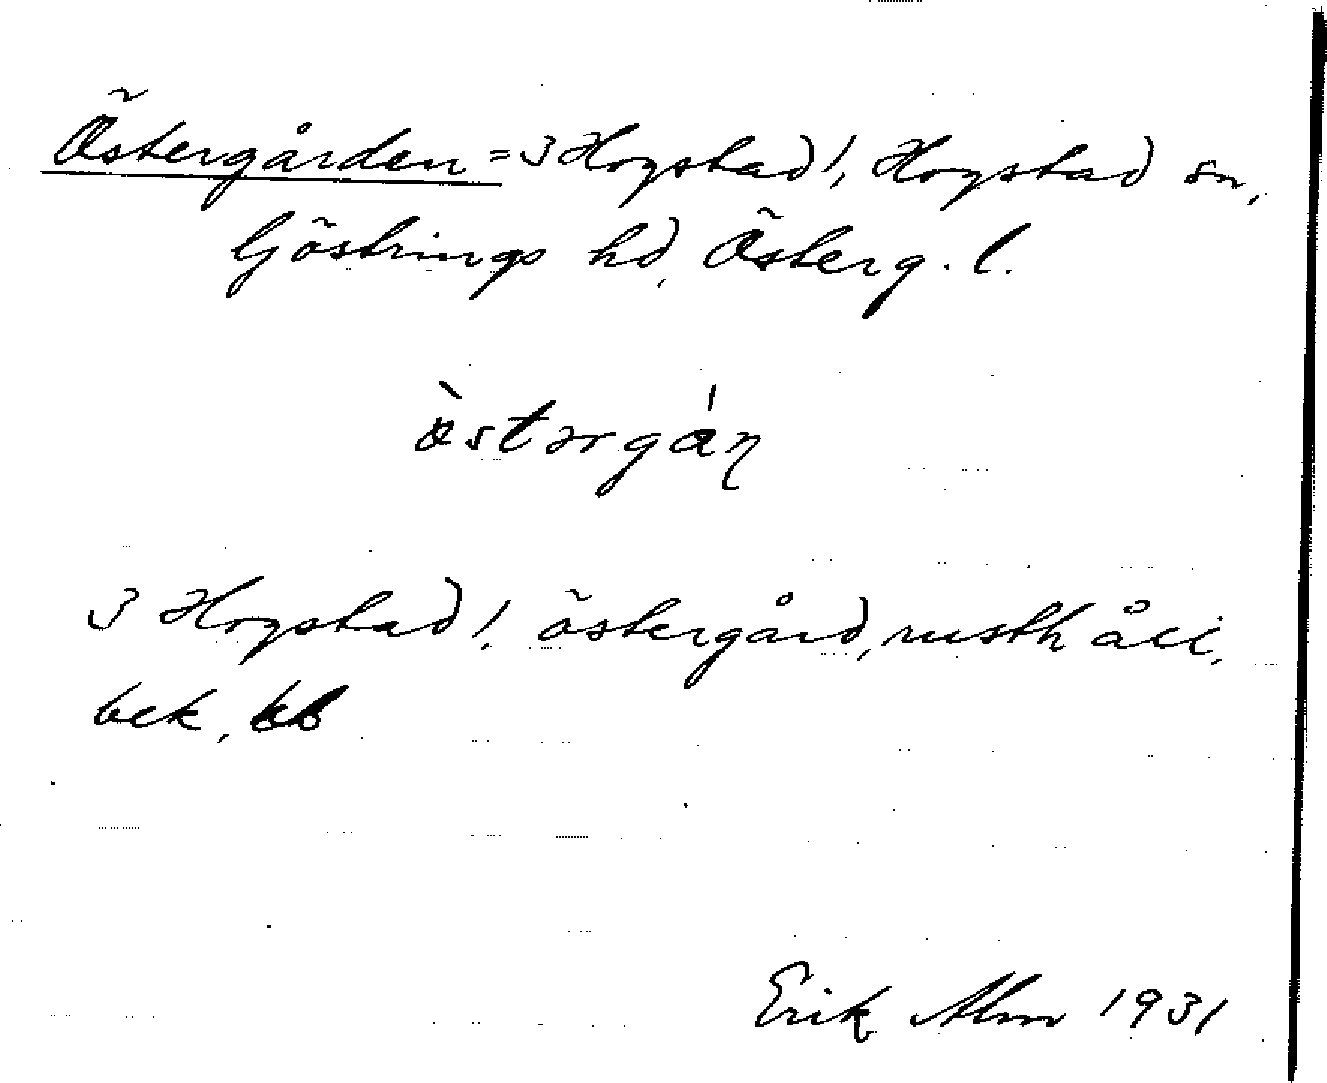 Östergården = 3 Hogstad !, Hogstad sn,
Göstrings hd, Österg. l.
östərgán
3 Hogstad !. östergård, rusthåll,
bek.
Erik Alm 1931